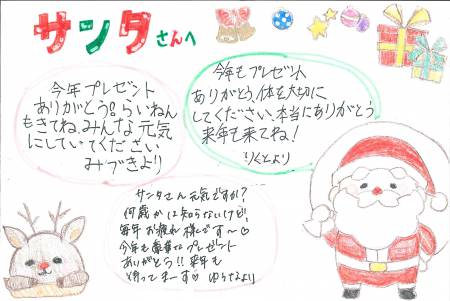 サンタさんへ
今年プレゼント
ありがとう。らいねん
もきてね。みんな元気
にしていてください
みづきより
今年もプレゼント
ありがとう、体を大切に
してください、本当にありがとう
来年も来てね!
りくとより
サンタさん元気ですか?
何歳かは知らないけど!
毎年お疲れ様です〜♡
今年も豪華なプレゼント
ありがとう!!来年も
待ってまーす♡